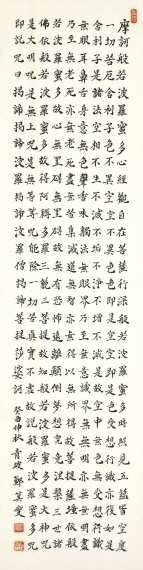 摩訶般若波羅蜜多心經觀自在菩薩行深般若波羅蜜多時照見五蘊皆空度
一切苦厄舍利子色不異空空不異色色即是空空即是色受想行識亦復如是
舍利子是諸法空相不生不滅不垢不淨不增不減是故空中無色無受想行識
無眼耳鼻舌身意無色聲香味觸法無眼界乃至無意識界無無明亦無無明盡
乃至無老死亦無老死盡無苦集滅道無智亦無得以無所得故菩提薩埵依般
若波羅蜜多故心無罣礙無罣礙故無有恐怖遠離顛倒夢想究竟涅槃三世諸
佛依般若波羅蜜多故得阿耨多羅三藐三菩提故知般若波羅蜜多是大神咒
是大明咒是無上咒是無等等咒能除一切苦真實不虛故說般若波羅蜜多咒
即說咒曰揭諦揭諦波羅揭諦波羅僧揭諦菩提莎婆訶 癸酉仲秋 青坡鄭